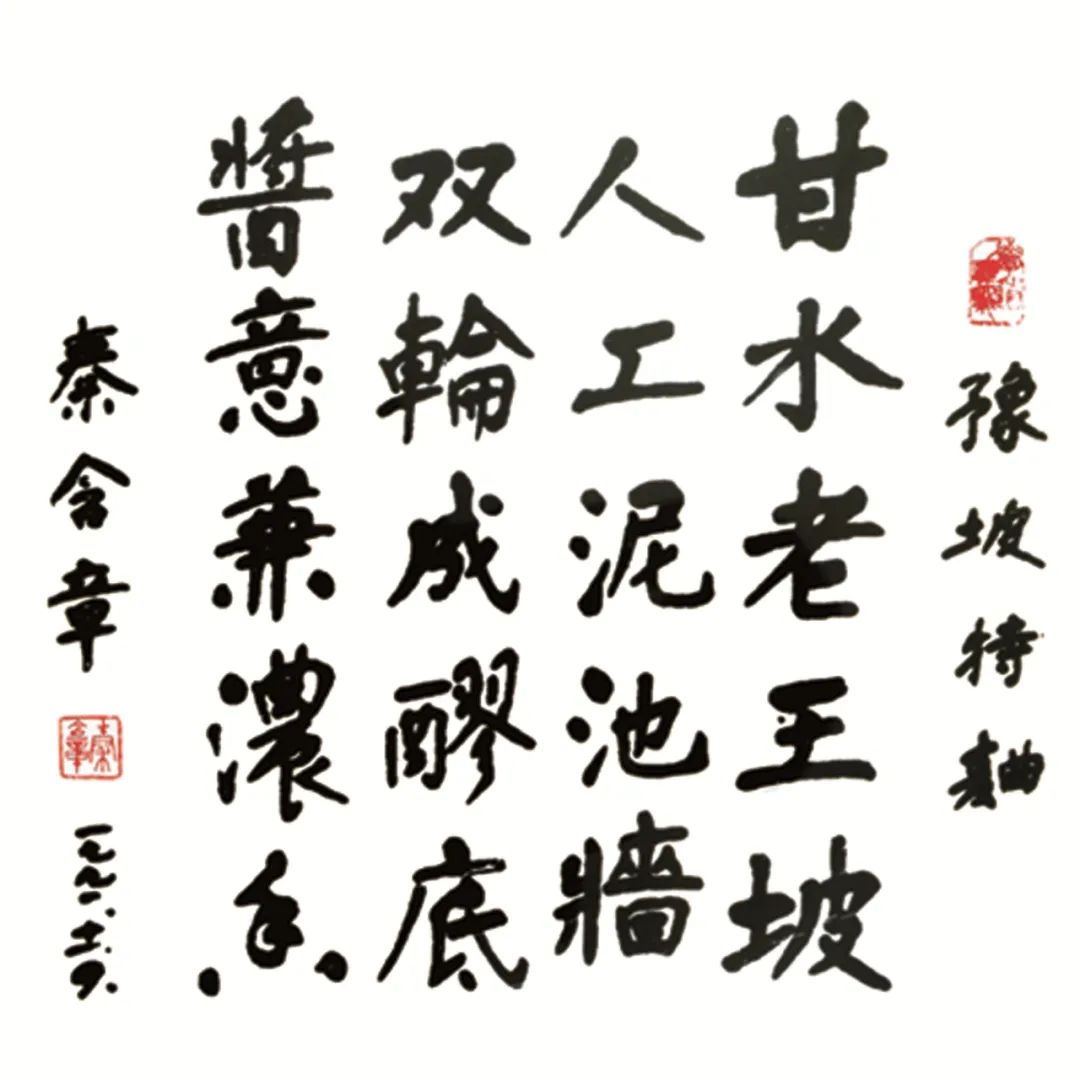 豫坡特麯
甘水老王坡
人工泥池牆
双輪成醪底
醬意兼濃香
秦含章
一九九一.十一.9.